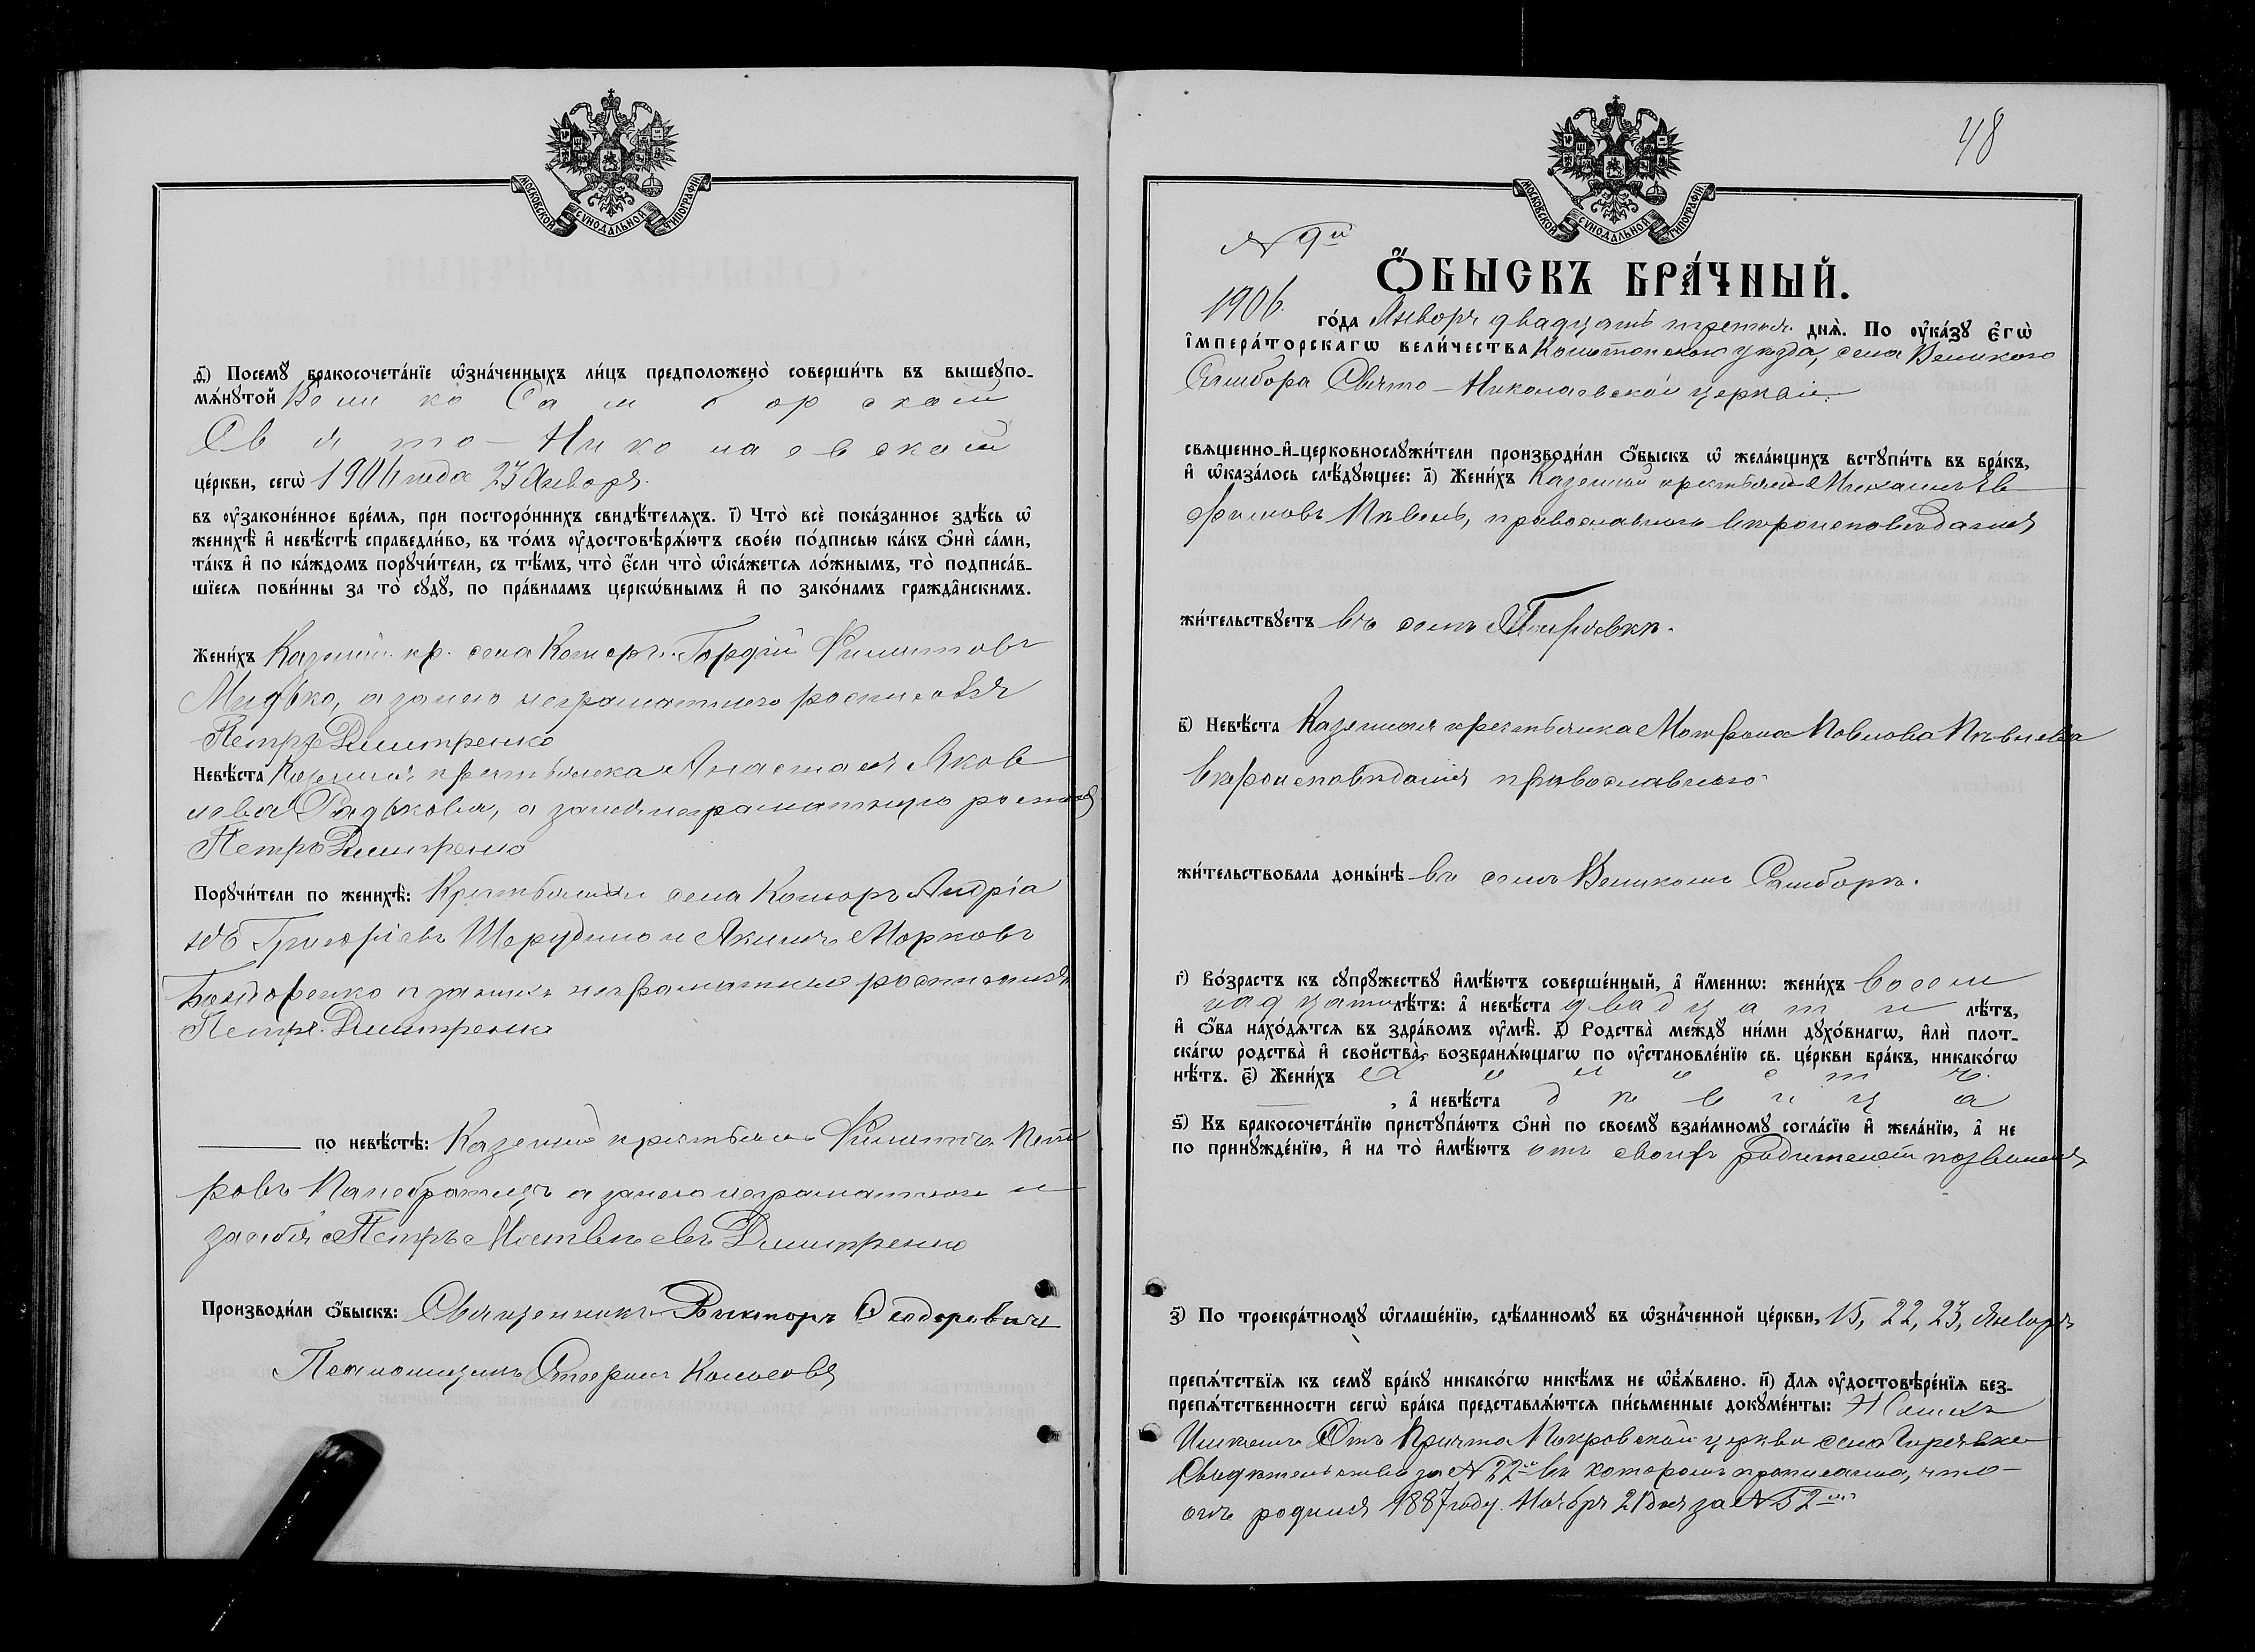 МОСКОВСКОЙ СѴНОДАЛЬНОЙ ТИПОГРАФІИ
ѳ҃) Посемꙋ̀ бракосочета́нїе ѡ҆зна́ченныхъ ли́цъ предположено̀ соверши́ть въ вышеꙋпо-
мѧ́нꙋтой Велико Самборской
Свято-Николаевской
це́ркви, сегѡ̀ 1906 года 23 Января
въ ᲂу҆законе́нное вре́мѧ, при посторо́ннихъ свидѣ́телѧхъ. і҃) Что̀ всѐ пока́занное здѣ́сь ѡ҆
женихѣ̀ и҆ невѣ́стѣ справедли́во, въ то́мъ ᲂу҆достовѣрѧ́ютъ свое́ю по́дписью ка́къ ѻ҆нѝ са́ми,
та́къ и҆ по ка́ждомъ порꙋчи́тели, съ тѣ́мъ, что̀ є҆́сли что̀ ѡ҆ка́жетсѧ ло́жнымъ, то̀ подписа́в-
шїесѧ пови́нны за то̀ сꙋдꙋ̀, по пра́виламъ церкѡ́внымъ и҆ по зако́намъ гражда̑нскимъ.
Жени́хъ Казенный кр. села Коморъ Гордій Филиповъ
Мидько, а за него неграмотнаго росписался
Петръ Дмитренко
Невѣ́ста Казенная крестьянка Анастасія Яков
лева Радькова, а за нея неграмотную росписался
Петръ Дмитренко
Порꙋчи́тели по женихѣ̀: Крестьяне села Коморъ Андріа
нъ Григоріевъ Шерудило и Якимъ Марковъ
Бондаренко а за нихъ неграмотныхъ росписался
Петръ Дмитренко
по невѣ́стѣ: Казенный крестьянинъ Филиппъ Пет
ровъ Панибратецъ а за него неграмотнаго и
за себя Петръ Матвѣевъ Дмитренко
Производи́ли ѻ҆́быскъ: Священникъ Викторъ Ѳеодоровичъ
Псаломщикъ
МОСКОВСКОЙ СѴНОДАЛЬНОЙ ТИПОГРАФІИ
48
№ 9й
ѺБЫСКЪ БРАЧНЫЙ.
1906 го́да Января двадцать третья днѧ̀. По ᲂу҆ка́зꙋ є҆гѡ̀
і҆мпера́торскагѡ вели́чества Конотопскаго уѣзда, села Великаго
Самбора Свято-Николаевской церкви
свѧщенно-и҆-церковнослꙋжи́тели производи́ли ѻ҆́быскъ ѡ҆ жела́ющихъ встꙋпи́ть въ бра́къ,
и҆ ѡ҆каза́лось слѣ́дꙋющее: а҃) Жени́хъ Казенный крестьянинъ Михаилъ Ев
фимовъ Пѣвень, православнаго вѣроисповѣданія
жи́тельствꙋетъ въ селѣ Гирявкѣ.
в҃) Невѣ́ста Казенная крестьянка Мотрона Павлова Пѣвнева
вѣроисповѣданія православнаго
жи́тельствовала доны́нѣ въ селѣ Великомъ Самборѣ.
г҃) Во́зрастъ къ сꙋпрꙋ́жествꙋ и҆мѣ́ютъ соверше́нный, а҆ и҆́меннѡ: жени́хъ восем
надцати лѣ́тъ: а҆ невѣ́ста двадцати лѣ́тъ,
и҆ ѻ҆́ба нахо́дѧтсѧ въ здра́вомъ ᲂу҆мѣ̀. д҃) Родства̀ междꙋ̀ ни́ми дꙋхо́внагѡ, и҆лѝ плот-
ска́гѡ родства̀ и҆ свойства̀, возбранѧ́ющагѡ по ᲂу҆становле́нїю св. це́ркви бра́къ, никако́гѡ
нѣ́тъ. є҃) Жени́хъ холостъ
, а҆ невѣ́ста дѣвица
ѕ҃) Къ бракосочета́нїю пристꙋпа́ютъ ѻ҆нѝ по своемꙋ̀ взаи́мномꙋ согла́сїю и҆ жела́нїю, а҆ не
по принꙋжде́нїю, и҆ на то̀ и҆мѣ́ютъ отъ своихъ родителей позволенія
з҃) По троекра́тномꙋ ѡ҆глаше́нїю, сдѣ́ланномꙋ въ ѡ҆зна́ченной це́ркви, 15, 22, 23, Января
препѧ́тствїѧ къ семꙋ̀ бра́кꙋ никако́гѡ никѣ́мъ не ѡ҆б̾ѧ́влено. и҃) Длѧ ᲂу҆достовѣре́нїѧ без-
препѧ́тственности сегѡ̀ бра́ка представлѧ́ютсѧ пи́сьменные докꙋме́нты:
Отъ Причта Покровской церкви села Гирявки
Свидѣтельство за № 22 въ которомъ прописано, что
онъ родился 1887 году. Ноября 21 дня за № 52